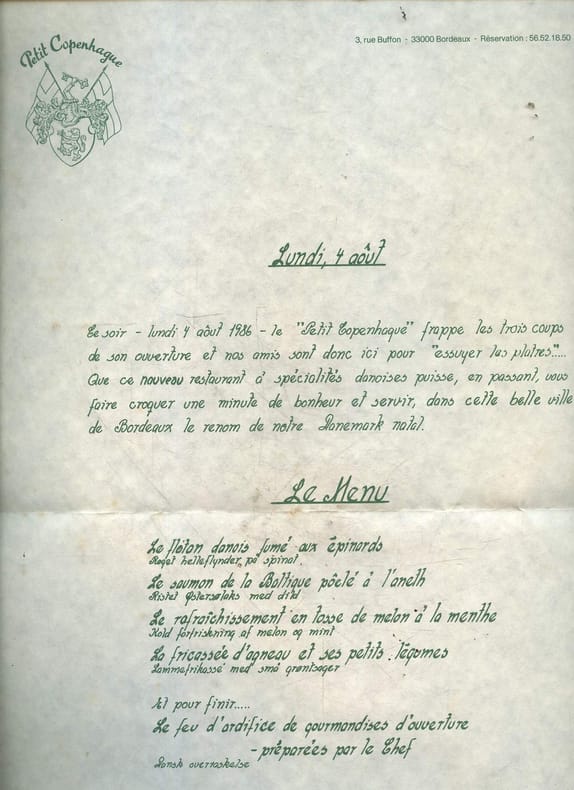 Petit Copenhague
3, rue Buffon - 33000 Bordeaux - Réservation : 56.52.18.50
Lundi, 4 août
Ce soir - lundi 4 août 1986 - le "Petit Copenhague" frappe les trois coups
de son ouverture et nos amis sont donc ici pour "essuyer les platres"....
Que ce nouveau restaurant à spécialités danoises puisse, en passant, vous
faire croquer une minute de bonheur et servir, dans cette belle ville
de Bordeaux le renom de notre Danemark natal.
Le Menu
Le flétan danois fumé aux épinards
Røget helleflynder på spinat
Le saumon de la Baltique pôêlé à l'aneth
Ristet Østersølaks med dild
Le rafraîchissement en tasse de melon à la menthe
Kold forfriskning af melon og mint
La fricassée d'agneau et ses petits légumes
Lammefrikassé med små grøntsager
Et pour finir.....
Le feu d'ardifice de gourmandises d'ouverture
- préparées par le Chef
Dansk overraskelse